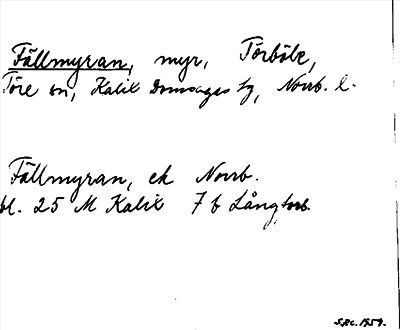 Fällmyran, myr, Törböle,
Töre sn, Kalix domsagas tg, Norrb. l.
Fällmyran, ek Norrb.
bl. 25 M Kalix 7 b Långtorb.
1959.